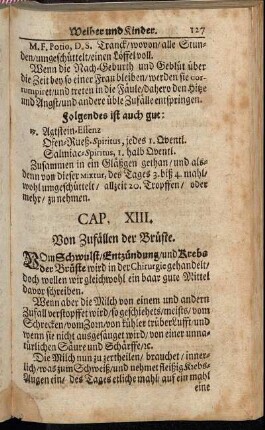 Weiber und Kinder. 127
M.F. Potio, D.S. Tranck/wovon/alle Stun-
den/umgeschüttelt/einen Löffel voll.
Wenn die Nach-Geburth und Geblüt über
die Zeit bey so einer Frau bleiben/werden sie cor-
rumpiret/und treten in die Fäule/dahero den Hitze
und Angst/und andere üble Zufälle entspringen.
Folgendes ist auch gut:
℞. Agtstein-Essenz
Ofen/Rueß-Spiritus, jedes 1. Qventl.
Salmiac-Spiritus, 1. halb Qventl.
Zusammen in ein Gläßgen gethan/und als-
denn von dieser mixtur, des Tages 3. biß 4. mahl/
wohl umgeschüttelt/allzeit 20. Tropffen/oder
mehr/zu nehmen.
CAP. XIII.
Von Zufällen der Brüste.
VOm Schwulst/Entzündung/und Krebs
der Brüste wird in der Chirurgie gehandelt/
doch wollen wir gleichwohl ein baar gute Mittel
davor schreiben.
Wenn aber die Milch von einem und andern
Zufall verstopfft wird/so geschiehets/meists/vom
Schrecken/vom Zorn/von kühler trüber Lufft/und
wenn sie nicht ausgesäuget wird/von einer unna-
türlichen Säure und Schärffe/ꝛc.
Die Milch nun zu zertheilen/brauchet/inner-
lich/was zum Schweiß/und nehmet fleißig Krebs-
Augen ein/des Tages etliche mahl/auf ein mahl
eine